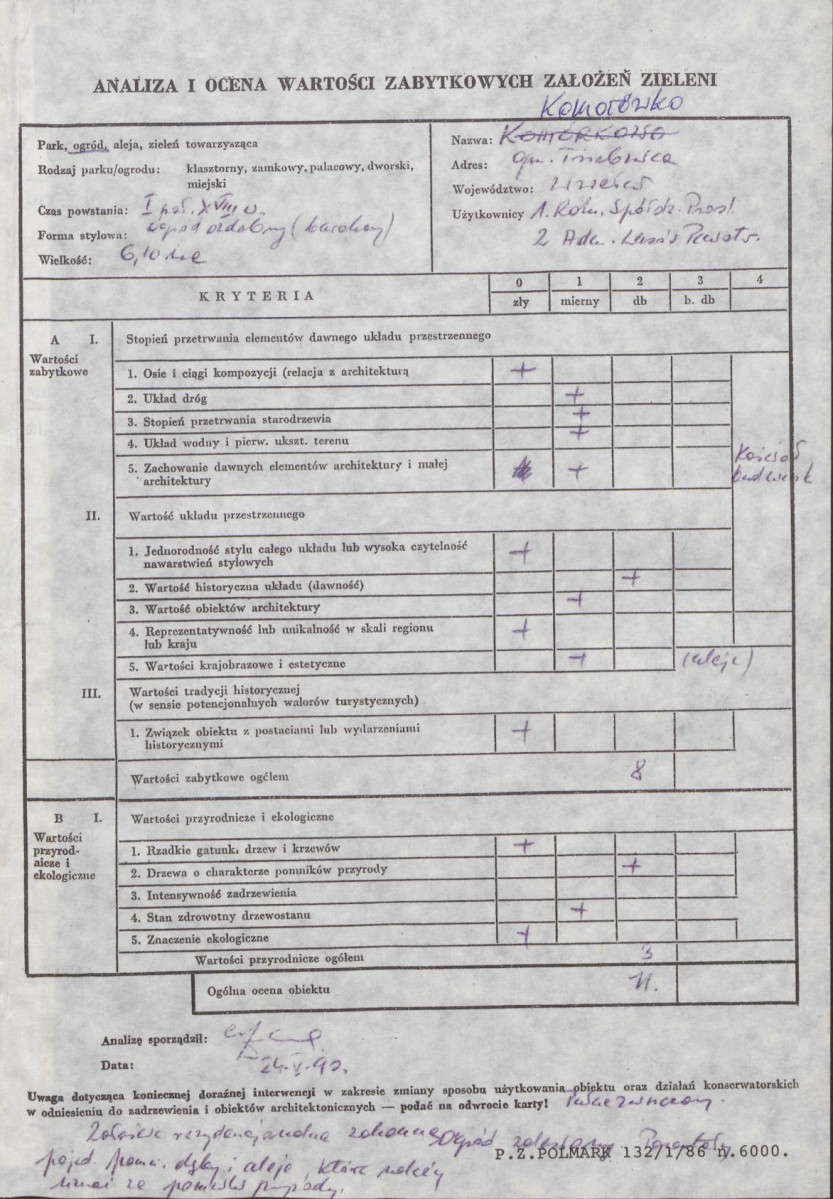 ANALIZA I OCENA WARTOŚCI ZABYTKOWYCH ZAŁOŻEŃ ZIELENI
Komorówko
Park, ogród, aleja, zieleń towarzysząca
Rodzaj parku/ogrodu: klasztorny, zamkowy, pałacowy, dworski, miejski
Czas powstania: I poł. XVIII w.
Forma stylowa: ogród ozdobny (barokowy)
Wielkość: 6,10 ha
Nazwa:
Adres: gm.
Województwo:
Użytkownicy 1. Roln. Spółdz. Prod.
2 Adm. Lasów Państw.
KRYTERIA
0 1 2 3 4
zły mierny db b. db
A I. Stopień przetrwania elementów dawnego układu przestrzennego
Wartości zabytkowe
1. Osie i ciągi kompozycji (relacja z architekturą +
2. Układ dróg +
3. Stopień przetrwania starodrzewia +
4. Układ wodny i pierw. ukszt. terenu +
5. Zachowanie dawnych elementów architektury i małej architektury +
Kościół
II. Wartość układu przestrzennego
1. Jednorodność stylu całego układu lub wysoka czytelność nawarstwień stylowych +
2. Wartość historyczna układu (dawność) +
3. Wartość obiektów architektury +
4. Reprezentatywność lub unikalność w skali regionu lub kraju +
5. Wartości krajobrazowe i estetyczne + (aleje)
III. Wartości tradycji historycznej
(w sensie potencjonalnych walorów turystycznych)
1. Związek obiektu z postaciami lub wydarzeniami historycznymi +
Wartości zabytkowe ogólem 8
B I. Wartości przyrodnicze i ekologiczne
Wartości przyrodnicze i ekologiczne
1. Rzadkie gatunki drzew i krzewów +
2. Drzewa o charakterze pomników przyrody +
3. Intensywność zadrzewienia
4. Stan zdrowotny drzewostanu +
5. Znaczenie ekologiczne +
Wartości przyrodnicze ogółem 3
Ogólna ocena obiektu 11.
Analizę sporządził:
Data: 24.V.90.
Uwaga dotycząca koniecznej doraźnej interwencji w zakresie zmiany sposobu użytkowania obiektu oraz działań konserwatorskich
w odniesieniu do zadrzewienia i obiektów architektonicznych — podać na odwrocie karty!
ogród
P.Z.POLMARK 132/1/86 n.6000.
pojed. pomn. dęby i aleje, które należy
uznać za pomniki przyrody.